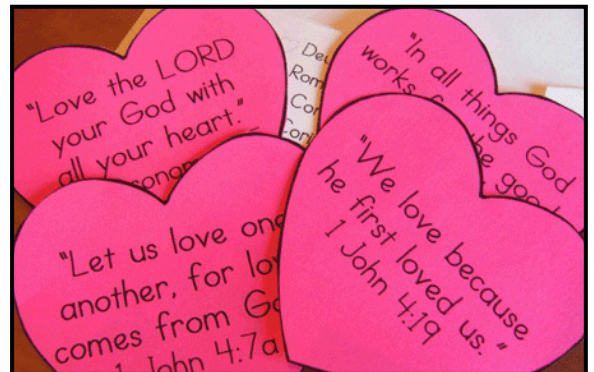 "Love the LORD
your God with
all your heart."
"In all things God
works
"Let us love one
another, for
comes from
1 John 4:7a
"We love because
he first loved us."
1 John 4:19